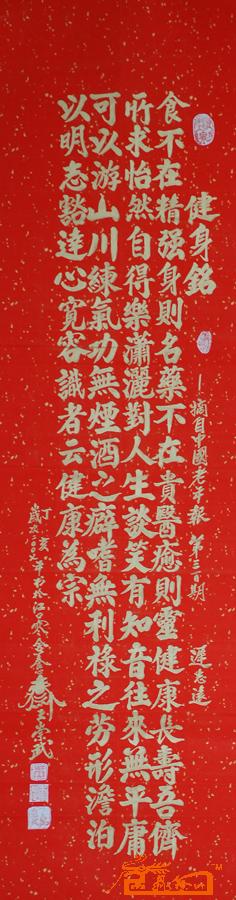 健身銘
—摘自中國老年报 第三百期 遲志達
食不在精强身則名藥不在貴醫癒則靈健康長壽吾儕
所求怡然自得樂瀟灑對人生談笑有知音往來無平庸
可以游山川練氣功無煙酒之癖嗜無利祿之勞形澹泊
以明志豁達心寬容識者云健康為宗
丁亥